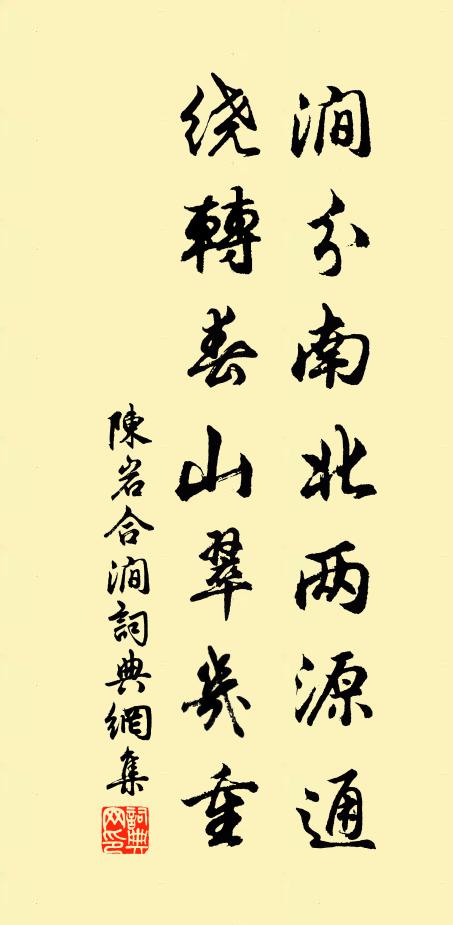 澗分南北两源通
绕轉春山翠幾重
陳岩合澗詞典網集
詞典网印